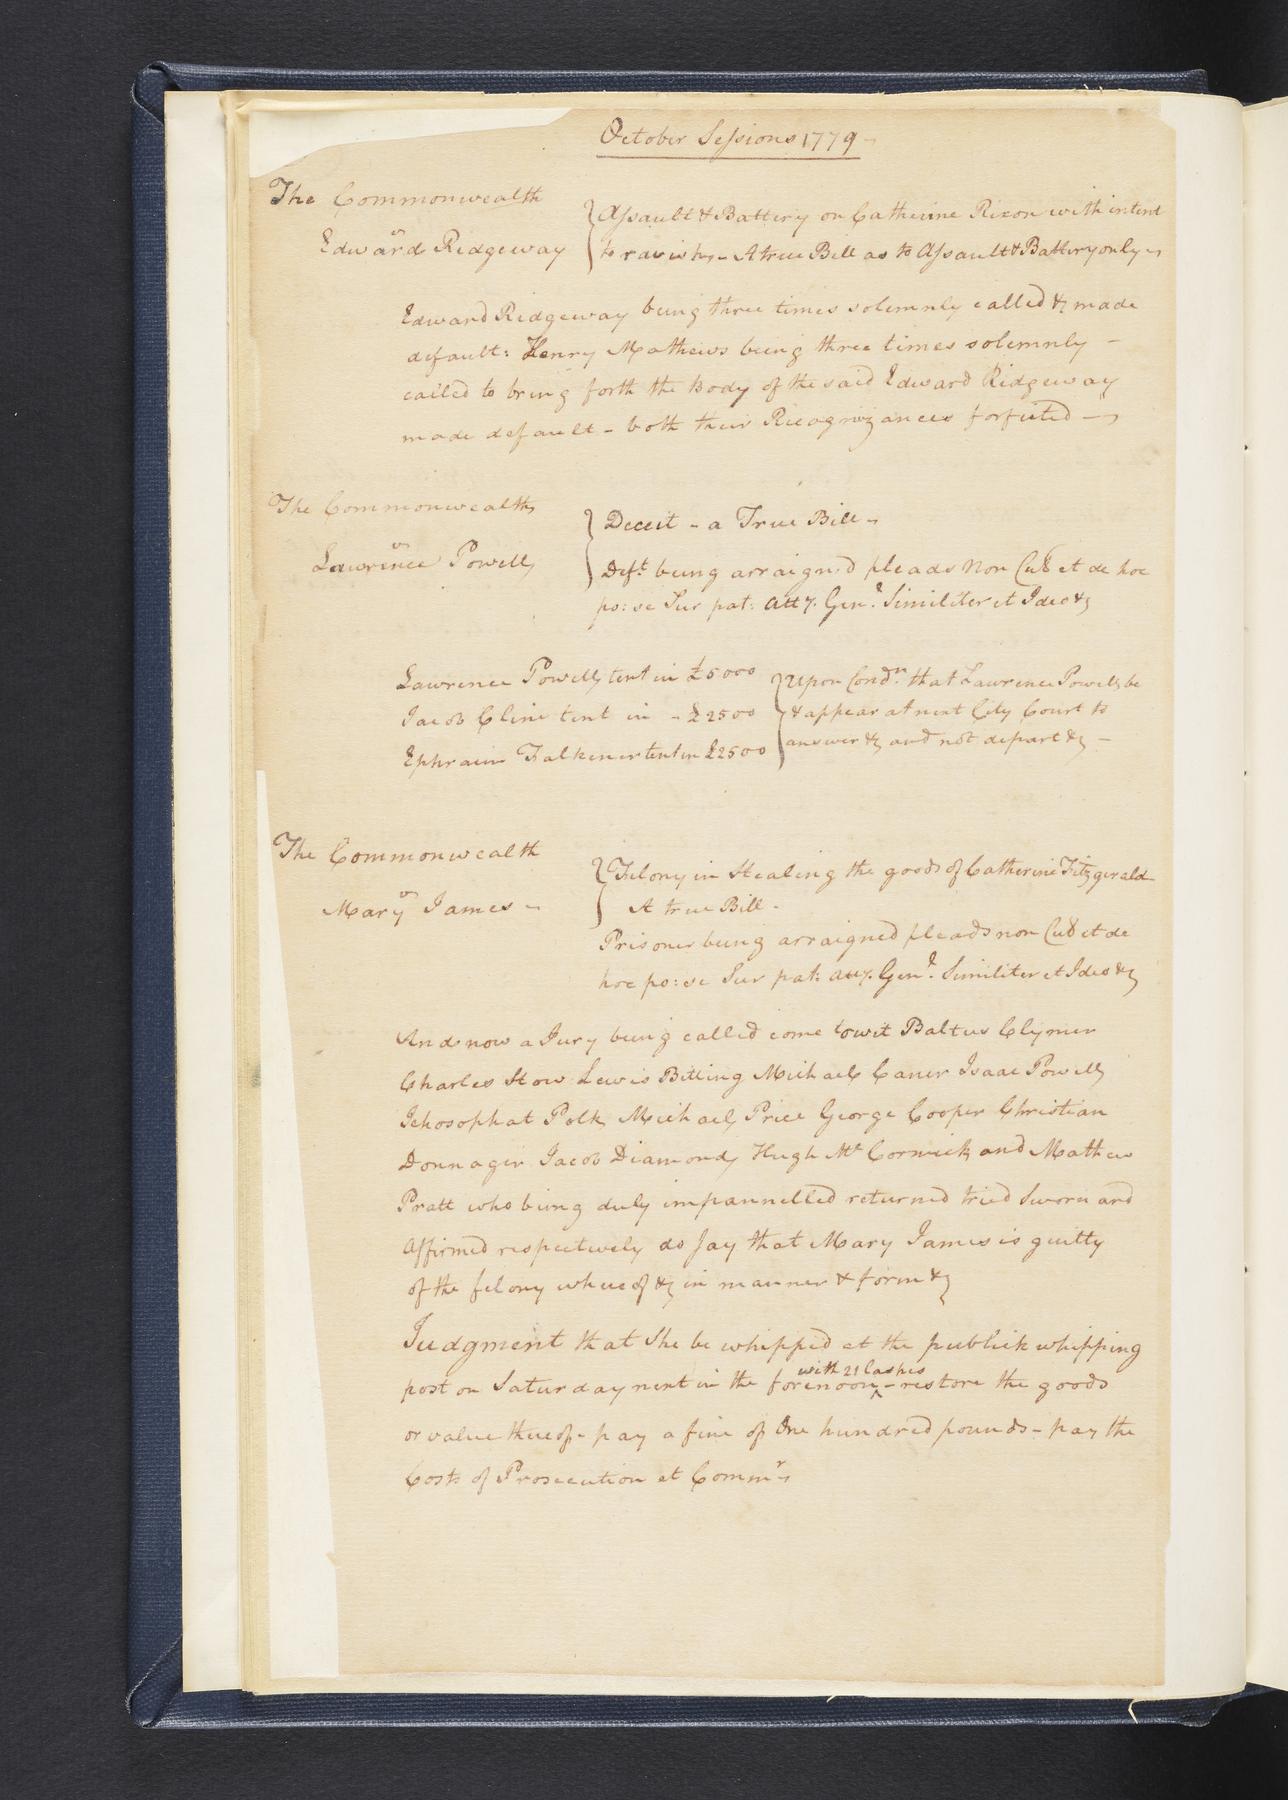 October Sessions 1779 -
The Commonwealth
v
Edward Ridgeway
Assault & Battery on Catherine Rixon with intent
to ravish - A true Bill as to Assault & Battery only -
Edward Ridgeway being three times solemnly called &c made
default: Henry Mathews being three times solemnly -
called to bring forth the Body of the said Edward Ridgeway
made default - both their Recognizances forfeited -
The Commonwealth
v
Lawrence Powell
Deceit - a True Bill -
Deft. being arraigned pleads Non Cul et de hoc
po: se Sur pat: Atty. Genl. Similiter et Ideo &c
Lawrence Powell tent in £5000
Jacob Cline tent in - £2500
Ephraim Falkener tent in £2500
Upon Condn. that Lawrence Powell be
& appear at next City Court to
answer &c and not depart &c -
The Commonwealth
v
Mary James -
Felony in Stealing the goods of Catherine Fitzgerald
A true Bill -
Prisoner being arraigned pleads non Cul et de
hoc po: se Sur pat: Atty. Genl. Similiter et Ideo &c
And now a Jury being called come towit Baltus Clymer
Charles Stow Lewis Bitting Michael Caner Isaac Powell
Jehosophat Polk Michael Price George Cooper Christian
Donnager Jacob Diamond Hugh Mc Cormick and Mathew
Pratt who being duly impannelled returned tried Sworn and
Affirmed respectively do Say that Mary James is guilty
of the felony whereof &c in manner & form &c
Judgment that She be whipped at the publick whipping
with 21 lashes
post on Saturday next in the forenoon ^ - restore the goods
or value thereof - pay a fine of One hundred pounds - pay the
Costs of Prosecution et Commr.